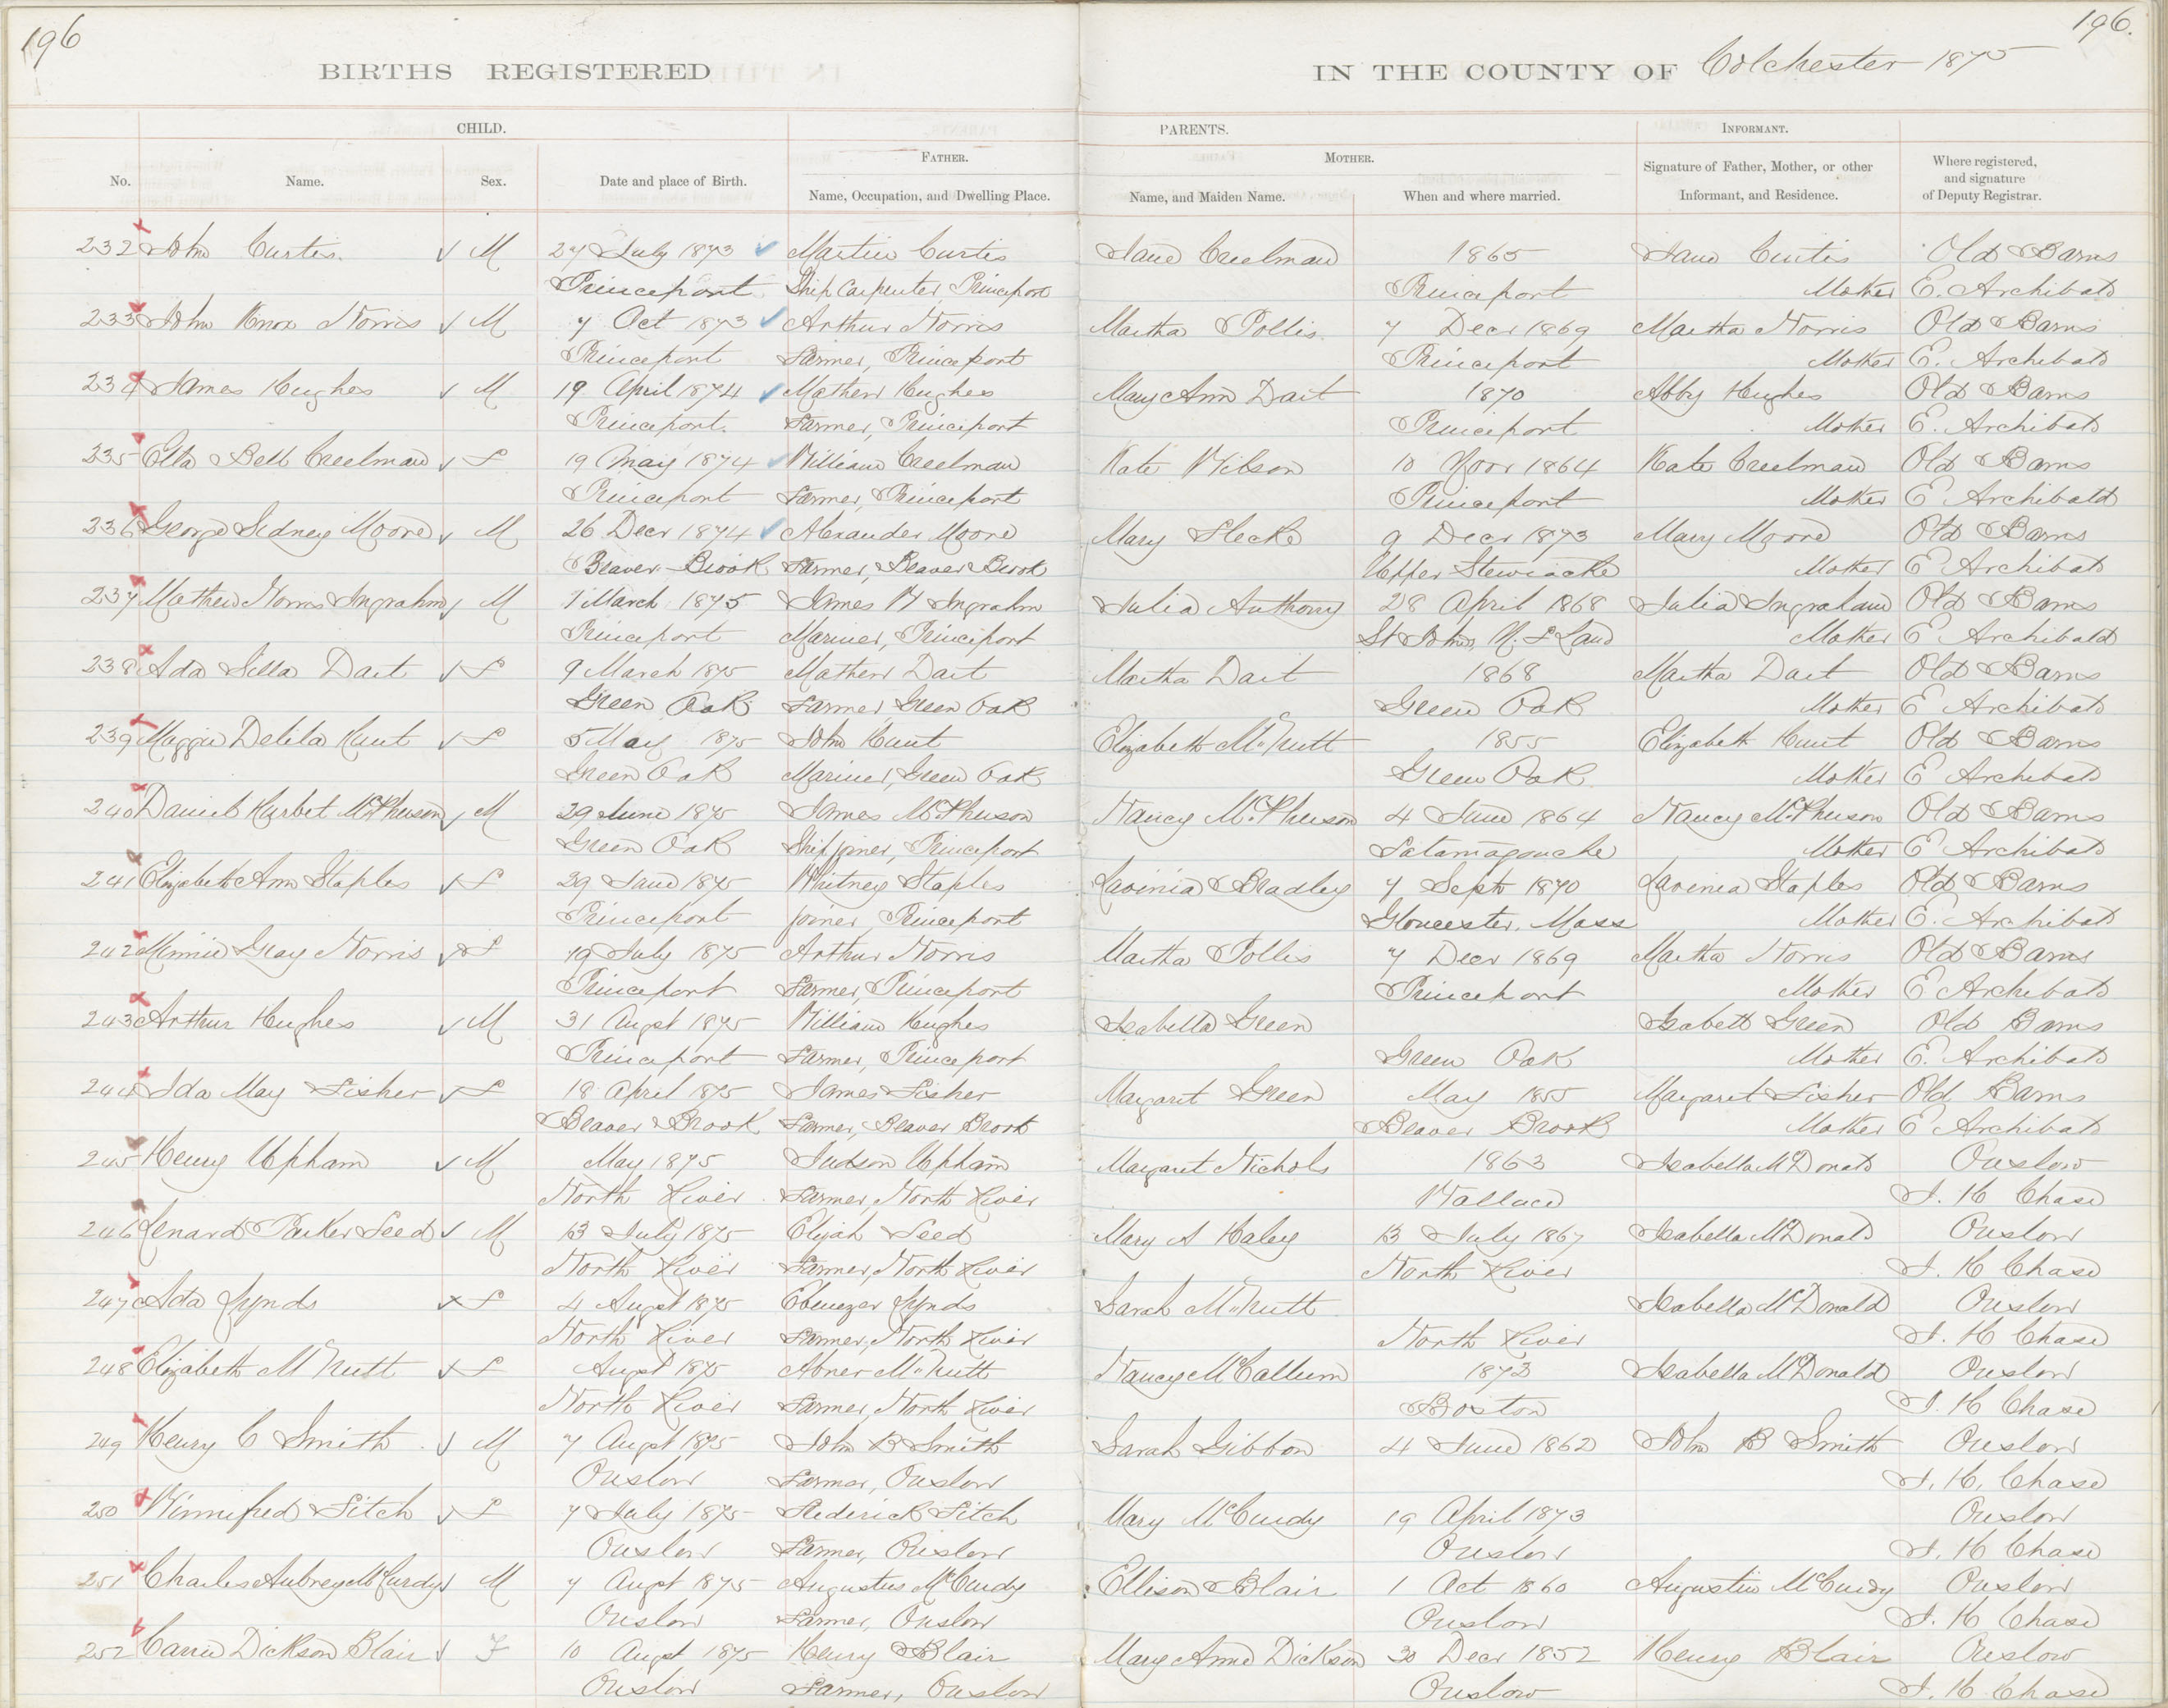 196
196.
BIRTHS REGISTERED IN THE COUNTY OF Colchester 1875
CHILD. PARENTS. INFORMANT.
FATHER. MOTHER.
No. Name. Sex. Date and place of Birth. Name, Occupation, and Dwelling Place. Name, and Maiden Name. When and where married. Signature of Father, Mother, or other Informant, and Residence. Where registered, and signature of Deputy Registrar.
232 John Curtis. M 27 July 1873 Martin Curtis Jane Creelman 1865 Jane Curtis Old Barns
Princeport Ship Carpenter, Princeport Princeport Mother E. Archibald
233 John Knox Norris M 7 Oct 1873 Arthur Norris Martha Pollis 7 Decr 1869 Martha Norris Old Barns
Princeport Farmer, Princeport Princeport Mother E. Archibald
234 James Hughes M 19 April 1874 Mathew Hughes Mary Ann Dart 1870 Abby Hughes Old Barns
Princeport. Farmer, Princeport Princeport Mother E. Archibald
235 Etta Bell Creelman F 19 May 1874 William Creelman Kate Wilson 10 Novr 1864 Kate Creelman Old Barns
Princeport Farmer, Princeport Princeport Mother E Archibald
236 George Sidney Moore M 26 Decr 1874 Alexander Moore Mary Fleck 9 Decr 1873 Mary Moore Old Barns
Beaver Brook Farmer, Beaver Brook Upper Stewiacke Mother E Archibald
237 Mathew Norris Ingrahm M 1 March 1875 James W Ingrahm Julia Anthony 28 April 1868 Julia Ingraham Old Barns
Princeport Mariner, Princeport St Johns, N. F Land Mother E Archibald
238 Ada Silla Dart F 9 March 1875 Mathew Dart Martha Dart 1868 Martha Dart Old Barns
Green Oak Farmer, Green Oak Green Oak Mother E Archibald
239 Maggie Delila Hunt F 5 May 1875 John Hunt Elizabeth McNutt 1855 Elizabeth Hunt Old Barns
Green Oak Mariner, Green Oak Green Oak Mother E Archibald
240 Daniel Hurbet McPherson M 29 June 1875 James McPherson Nancy McPherson 4 June 1864 Nancy McPherson Old Barns
Green Oak Ship joiner, Princeport Tatamagouche Mother E Archibald
241 Elizabeth Ann Staples F 29 June 1875 Whitney Staples Lavinia Bradley 7 Sept 1870 Lavinia Staples Old Barns
Princeport joiner, Princeport Gloucester, Mass Mother E. Archibald
242 Minnie Gray Norris F 19 July 1875 Arthur Norris Martha Pollis 7 Decr 1869 Martha Norris Old Barns
Princeport Farmer, Princeport Princeport Mother E Archibald
243 Arthur Hughes M 31 Augst 1875 William Hughes Isabella Green Isabell Green Old Barns
Princeport Farmer, Princeport Green Oak Mother E. Archibald
244 Ida May Fisher F 18 April 1875 James Fisher Margaret Green May 1855 Margaret Fisher Old Barns
Beaver Brook Farmer, Beaver Brook Beaver Brook Mother E Archibald
245 Henry Upham M May 1875 Judson Upham Margaret Nichols 1863 Isabella McDonald Onslow
North River Farmer, North River Wallace I. K Chase
246 Lenard Parker Seed M 13 July 1875 Elijah Seed Mary A Haley 13 July 1867 Isabella McDonald Onslow
North River Farmer, North River North River I. K Chase
247 Ada Lynds F 4 Augst 1875 Ebenezer Lynds Sarah McNutt Isabella McDonald Onslow
North River Farmer, North River North River I. K Chase
248 Elizabeth McNutt F Augst 1875 Abner McNutt Nancy McCallum 1873 Isabella McDonald Onslow
North River Farmer, North River Boston I. K Chase
249 Henry C Smith M 7 Augst 1875 John B Smith Sarah Gibbon 4 June 1862 John B Smith Onslow
Onslow Farmer, Onslow I. K. Chase
250 Winnifred Fitch F 7 July 1875 Frederick Fitch Mary McCurdy 19 April 1873 Onslow
Onslow Farmer, Onslow Onslow I. K Chase
251 Charles Aubrey McCurdy M 7 Augst 1875 Augustus McCurdy Ellison Blair 1 Oct 1860 Augustin McCurdy Onslow
Onslow Farmer, Onslow Onslow I. K Chase
252 Carrie Dickson Blair F 10 Augst 1875 Henry Blair Mary Anne Dickson 30 Decr 1852 Henry Blair Onslow
Onslow Farmer, Onslow Onslow I. K Chase